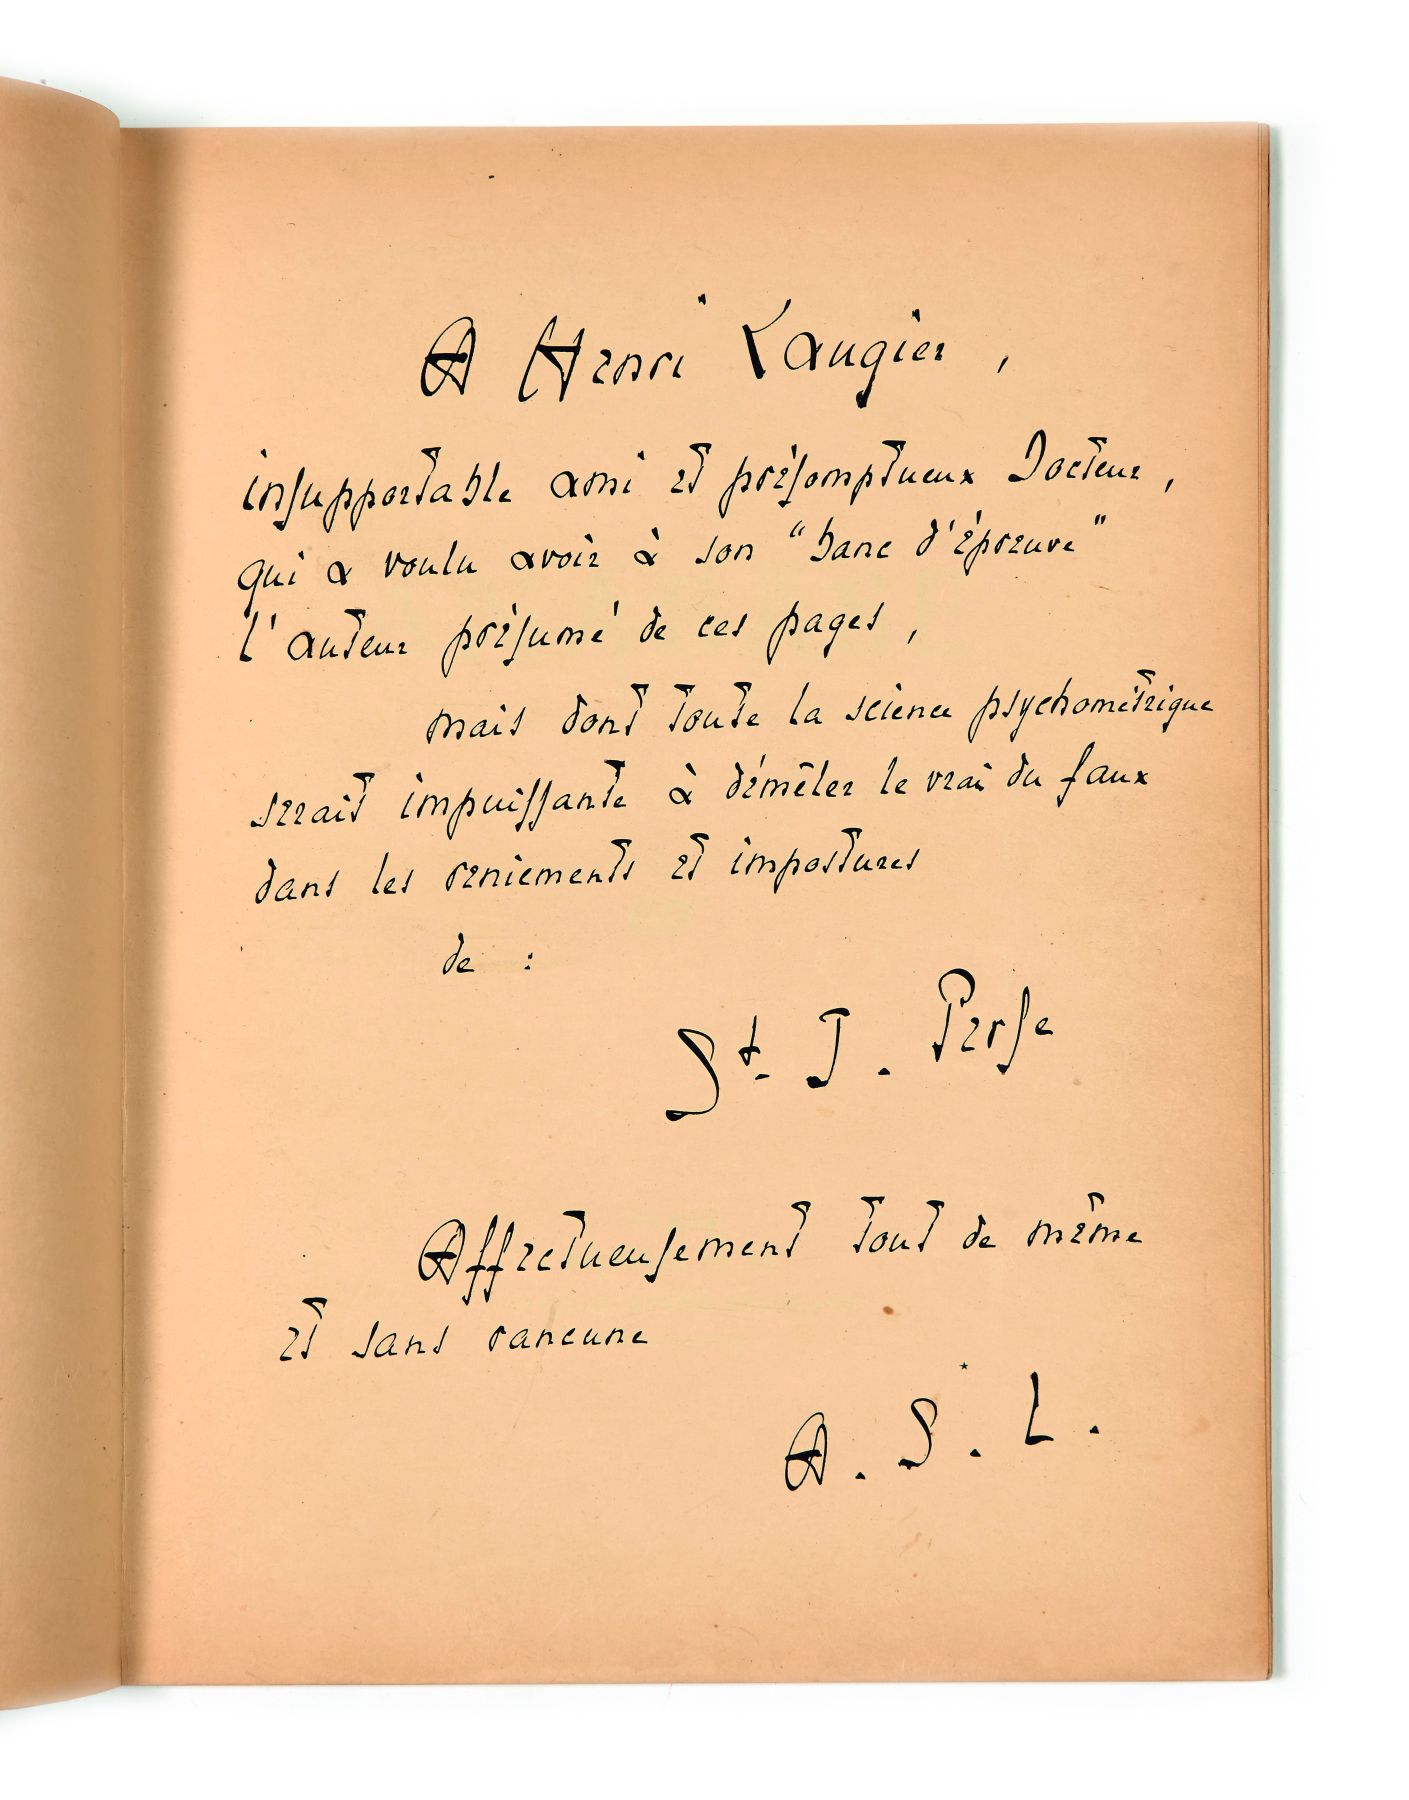 A Henri Laugier,
insupportable ami et présomptueux Docteur,
qui a voulu avoir à son "banc d'épreuve"
l'auteur présumé de ces pages,
mais dont toute la science psychométrique
serait impuissante à démêler le vrai du faux
dans les reniements et impostures
de :
St. J. Perse
Affectueusement tout de même
et sans rancune
A. S. L.